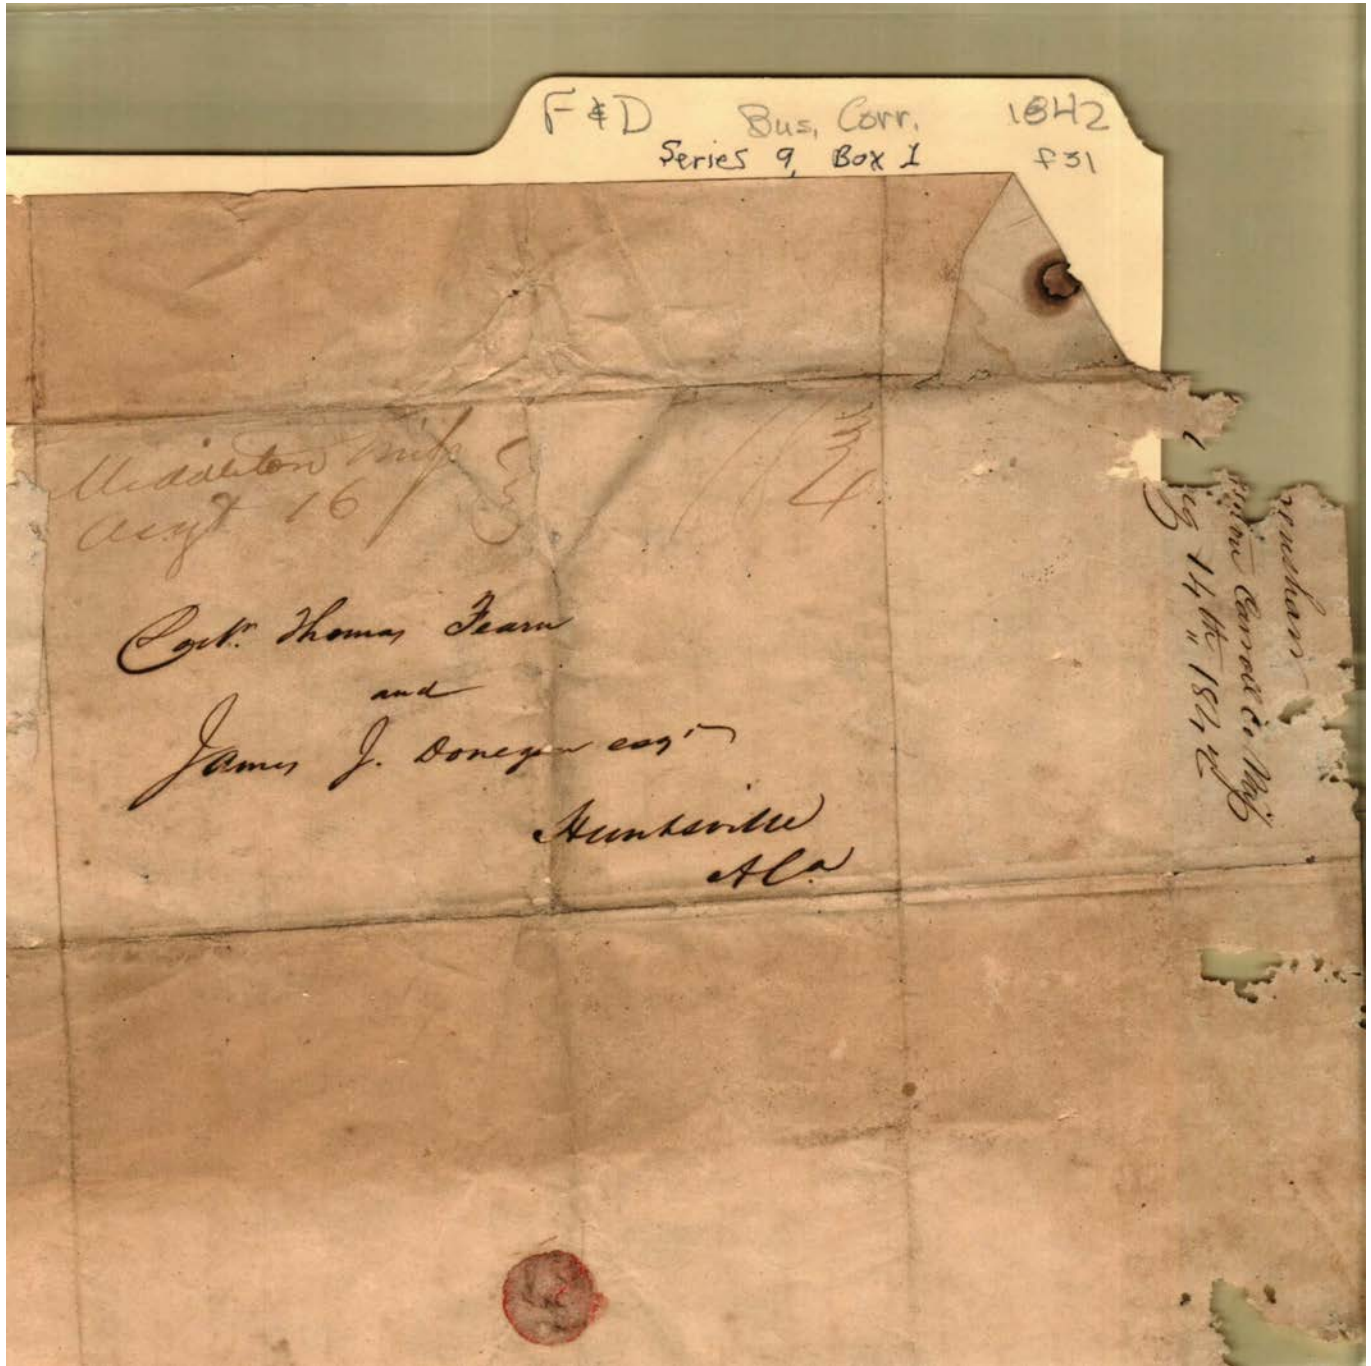 F & D Bus, Corr. 1842
Series 9, Box 1 F31
Middleton Miss
Augt 16
Doctr. Thomas Fearn
and
James J. Donegan esqr
Huntsville
Ala
Carroll Co. Miss
14th 1842